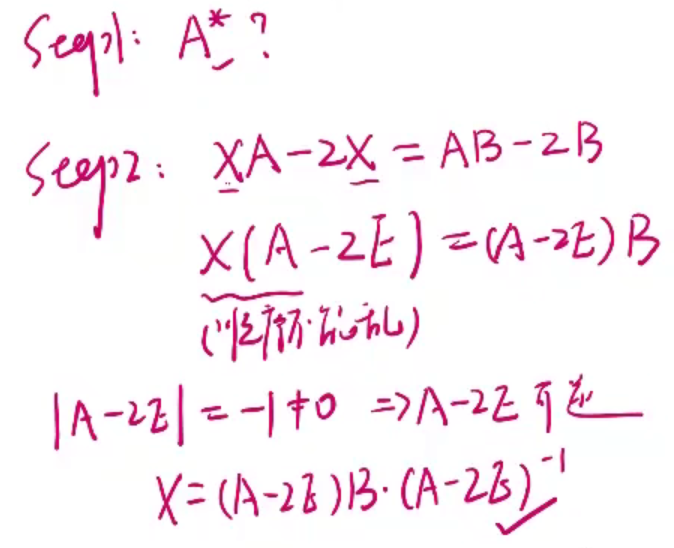 Step1: A*?
Step2: XA-2X = AB-2B
X(A-2E) = (A-2E)B
|A-2E| = -1≠0 => A-2E 可逆
X = (A-2E)B·(A-2E)⁻¹